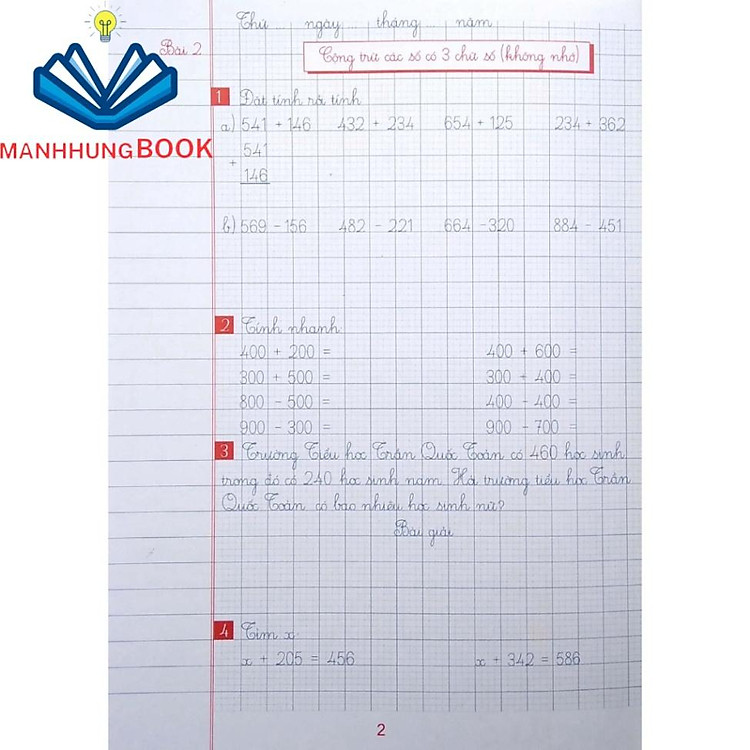 Thứ ... ngày ... tháng ... năm ...
Bài 2
Cộng trừ các số có 3 chữ số (không nhớ)
1 Đặt tính rồi tính
a) 541 + 146 432 + 234 654 + 125 234 + 362
MANHHUNGBOOK
541
+
146
b) 569 - 156 482 - 221 664 - 320 884 - 451
2 Tính nhanh
400 + 200 = 400 + 600 =
300 + 500 = 300 + 400 =
800 - 500 = 400 - 400 =
900 - 300 = 900 - 700 =
3 Trường Tiểu học Trần Quốc Toản có 460 học sinh
trong đó có 240 học sinh nam. Hỏi trường tiểu học Trần
Quốc Toản có bao nhiêu học sinh nữ?
Bài giải
4 Tìm x
x + 205 = 456 x + 342 = 586
2